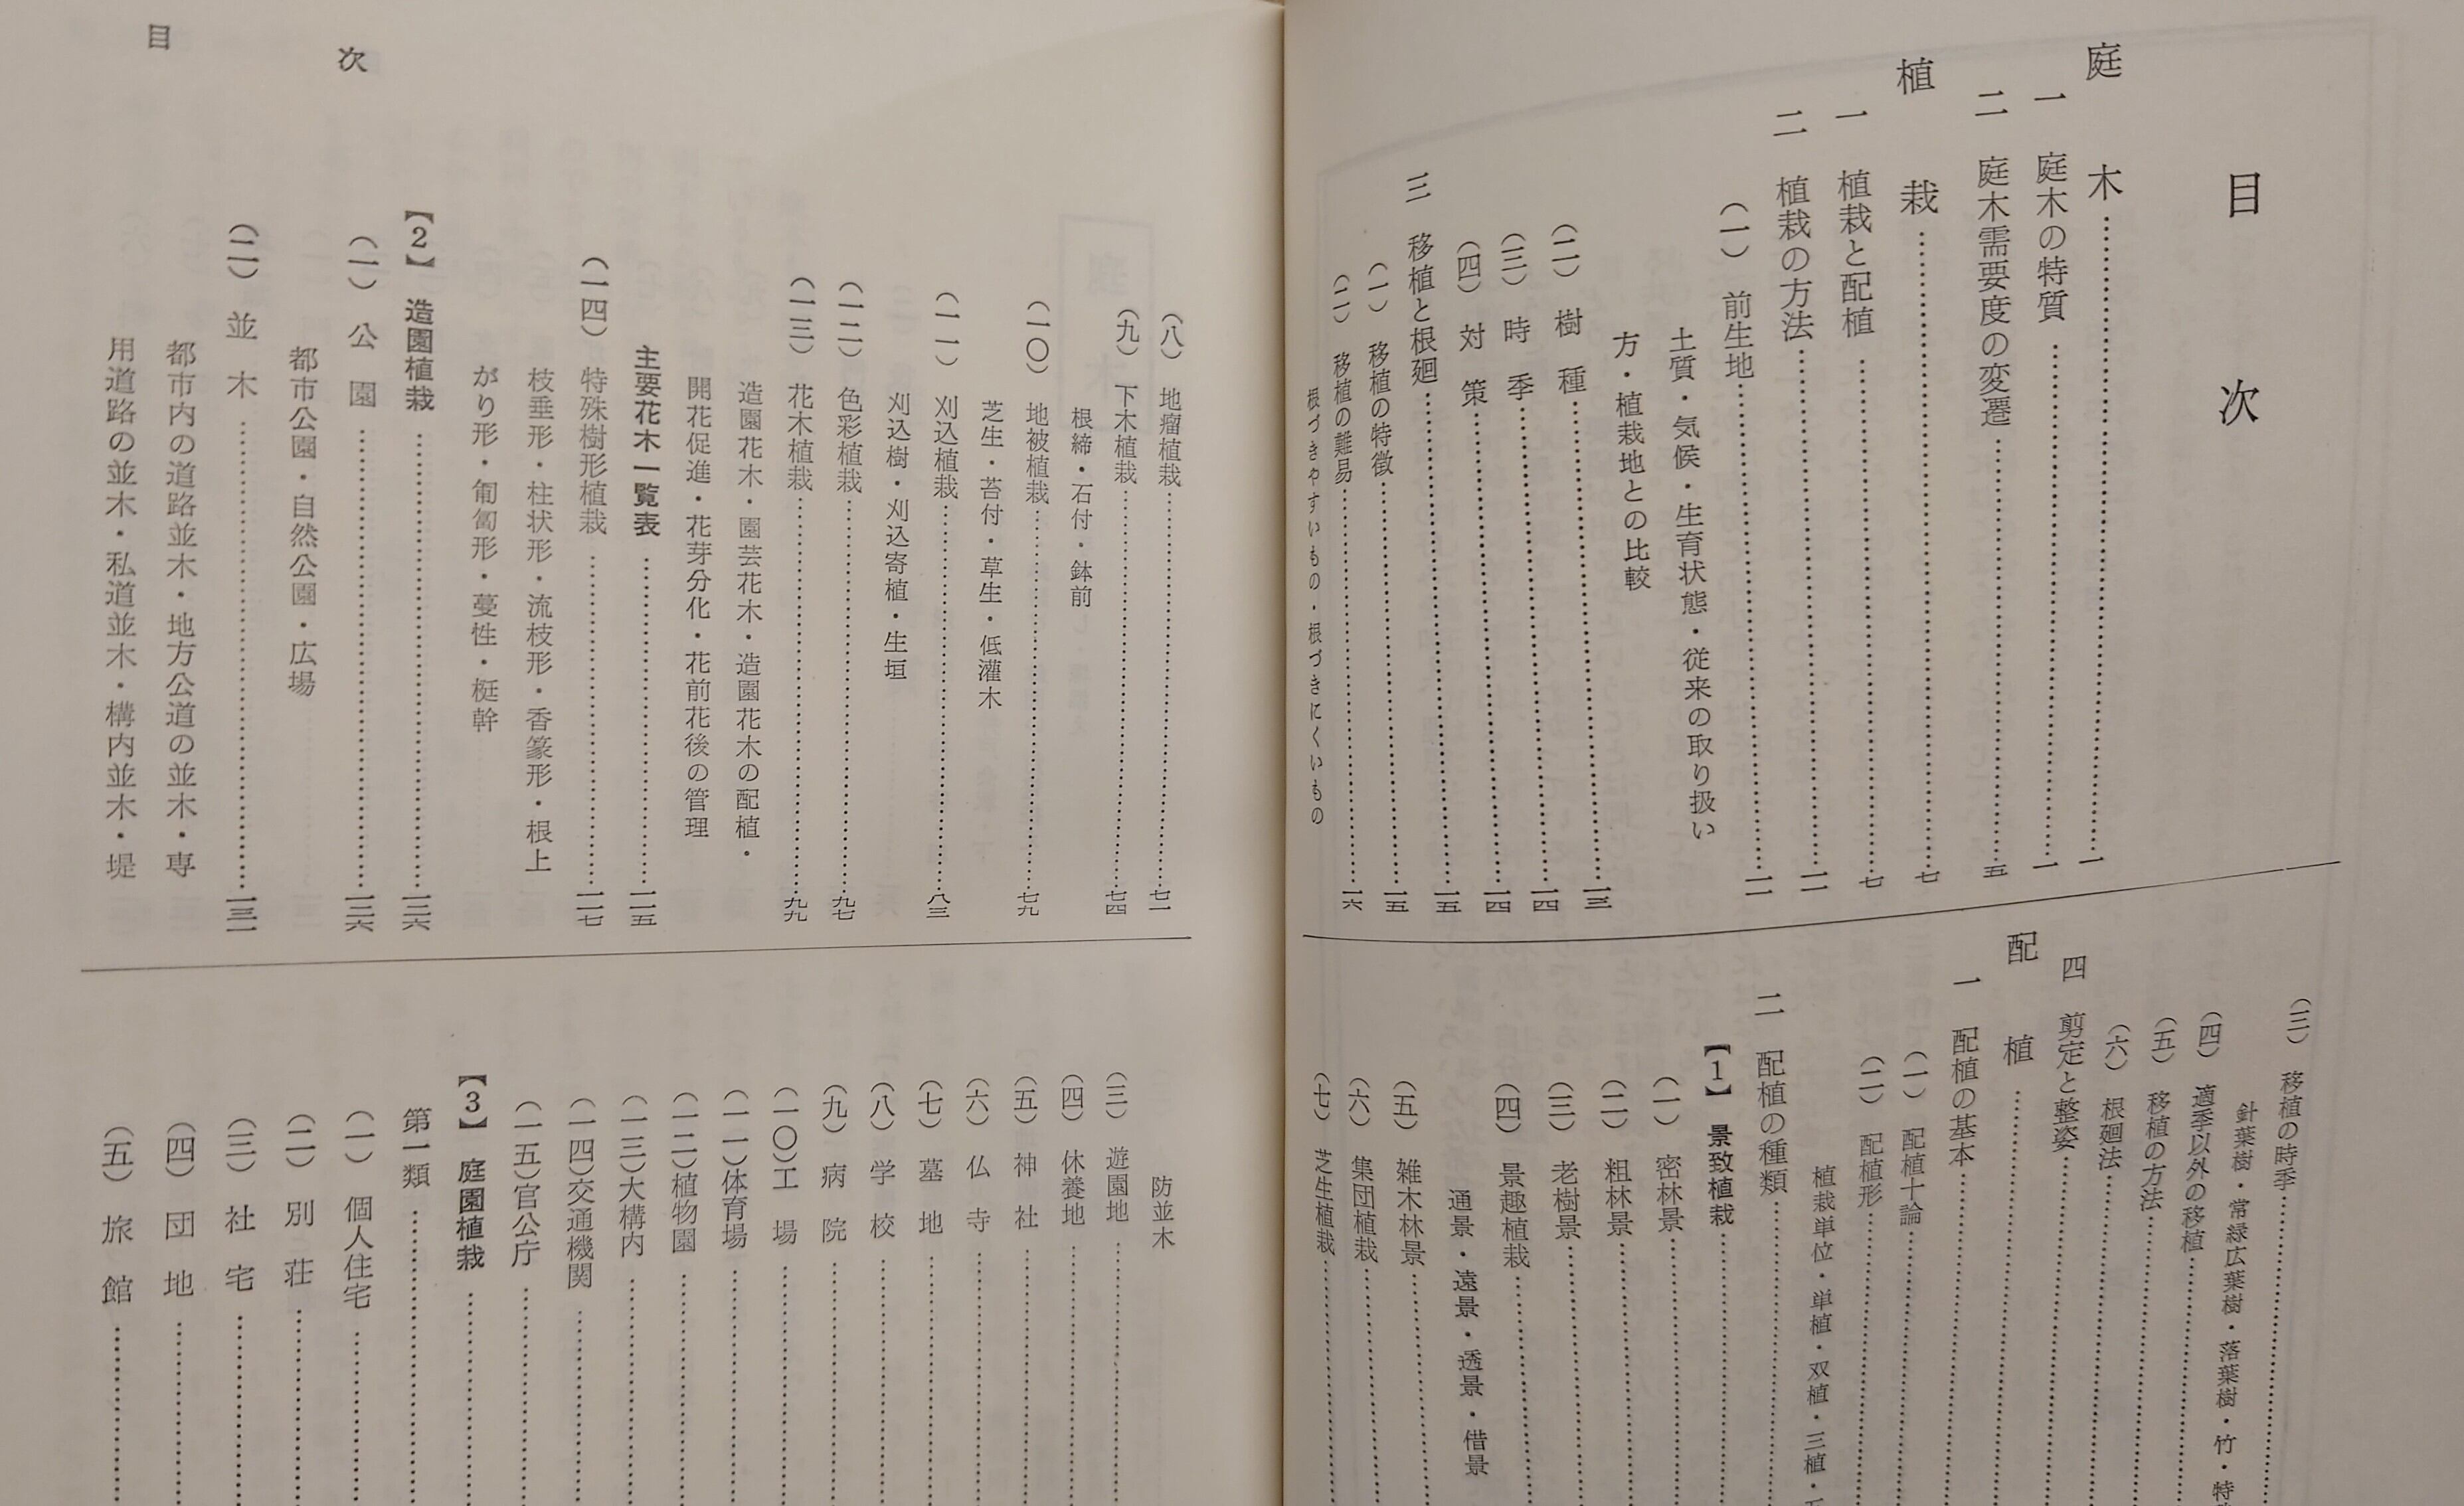 目次
庭木……一
一 庭木の特質……一
二 庭木需要度の変遷……五
植栽……七
一 植栽と配植……七
二 植栽の方法……一一
(一) 前生地……一一
土質・気候・生育状態・従来の取り扱い
方・植栽地との比較
(二) 樹種……一三
(三) 時季……一四
(四) 対策……一四
三 移植と根廻……一五
(一) 移植の特徴……一五
(二) 移植の難易……一六
根づきやすいもの・根づきにくいもの
(三) 移植の時季……
針葉樹・常緑広葉樹・落葉樹・竹・特
(四) 適季以外の移植……
(五) 移植の方法……
(六) 根廻法……
四 剪定と整姿……
配植……
一 配植の基本……
(一) 配植十論……
(二) 配植形……
植栽単位・単植・双植・三植・
二 配植の種類……
【1】 景致植栽……
(一) 密林景……
(二) 粗林景……
(三) 老樹景……
(四) 景趣植栽……
通景・遠景・透景・借景
(五) 雑木林景……
(六) 集団植栽……
(七) 芝生植栽……
目次
(八) 地瘤植栽……七一
(九) 下木植栽……七四
根締・石付・鉢前
(一〇) 地被植栽……七九
芝生・苔付・草生・低灌木
(一一) 刈込植栽……八三
刈込樹・刈込寄植・生垣
(一二) 色彩植栽……九七
(一三) 花木植栽……九九
造園花木・園芸花木・造園花木の配植・
開花促進・花芽分化・花前花後の管理
主要花木一覧表……一一五
(一四) 特殊樹形植栽……一一七
枝垂形・柱状形・流枝形・香篆形・根上
がり形・匍匐形・蔓性・梃幹
【2】 造園植栽……一二六
(一) 公園……一二六
都市公園・自然公園・広場
(二) 並木……一三一
都市内の道路並木・地方公道の並木・専
用道路の並木・私道並木・構内並木・堤
防並木
(三) 遊園地……
(四) 休養地……
(五) 神社……
(六) 仏寺……
(七) 墓地……
(八) 学校……
(九) 病院……
(一〇)工場……
(一一)体育場……
(一二)植物園……
(一三)大構内……
(一四)交通機関……
(一五)官公庁……
【3】 庭園植栽……
第一類……
(一) 個人住宅……
(二) 別荘……
(三) 社宅……
(四) 団地……
(五) 旅館……